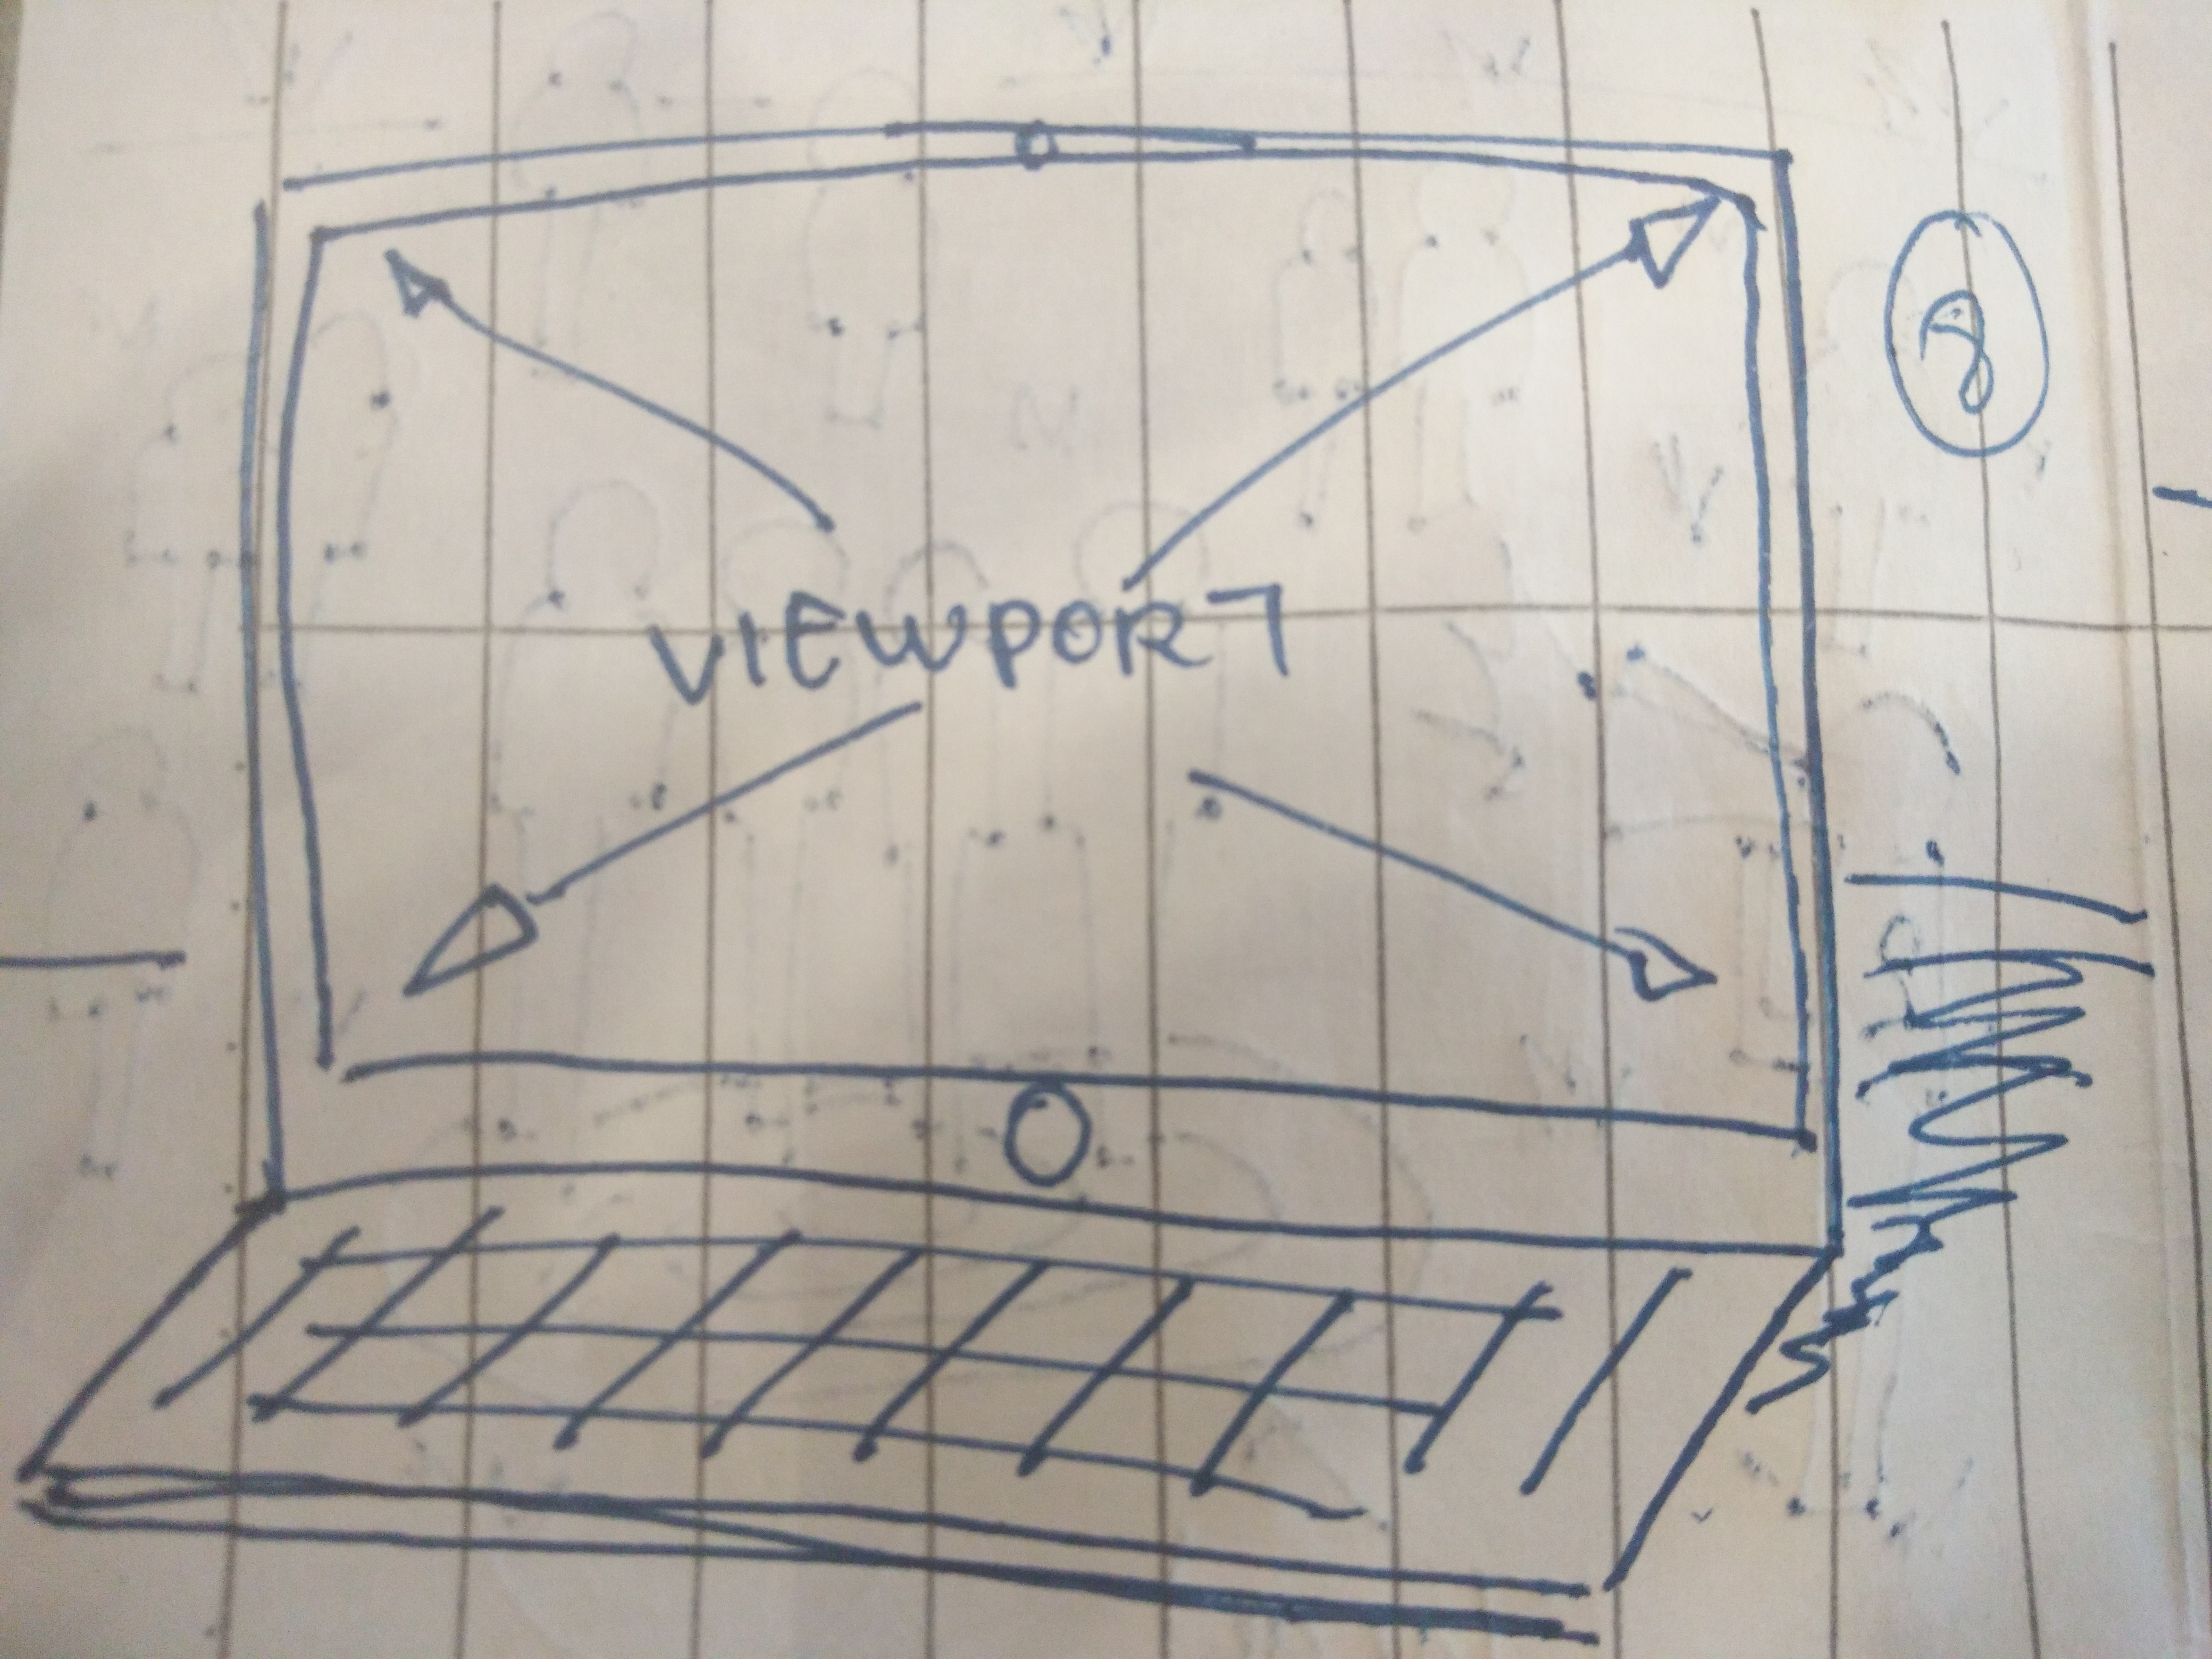 VIEWPORT
8